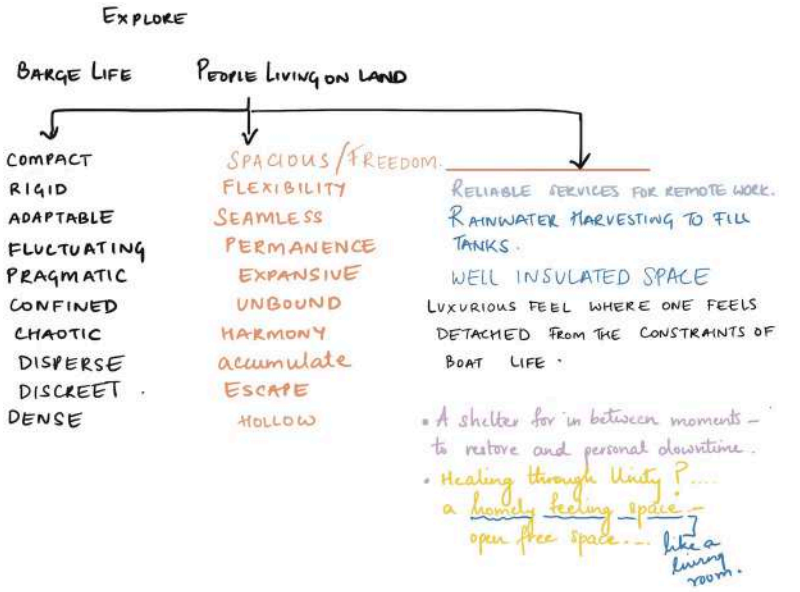 EXPLORE
BARGE LIFE
PEOPLE LIVING ON LAND
COMPACT
RIGID
ADAPTABLE
FLUCTUATING
PRAGMATIC
CONFINED
CHAOTIC
DISPERSE
DISCREET .
DENSE
SPACIOUS/FREEDOM.
FLEXIBILITY
SEAMLESS
PERMANENCE
EXPANSIVE
UNBOUND
HARMONY
accumulate
ESCAPE
HOLLOW
RELIABLE SERVICES FOR REMOTE WORK.
RAINWATER HARVESTING TO FILL
TANKS.
WELL INSULATED SPACE
LUXURIOUS FEEL WHERE ONE FEELS
DETACHED FROM THE CONSTRAINTS OF
BOAT LIFE .
• A shelter for in between moments –
to restore and personal downtime.
• Healing through Unity ?....
a homely feeling space –
open free space....
like a
living
room.